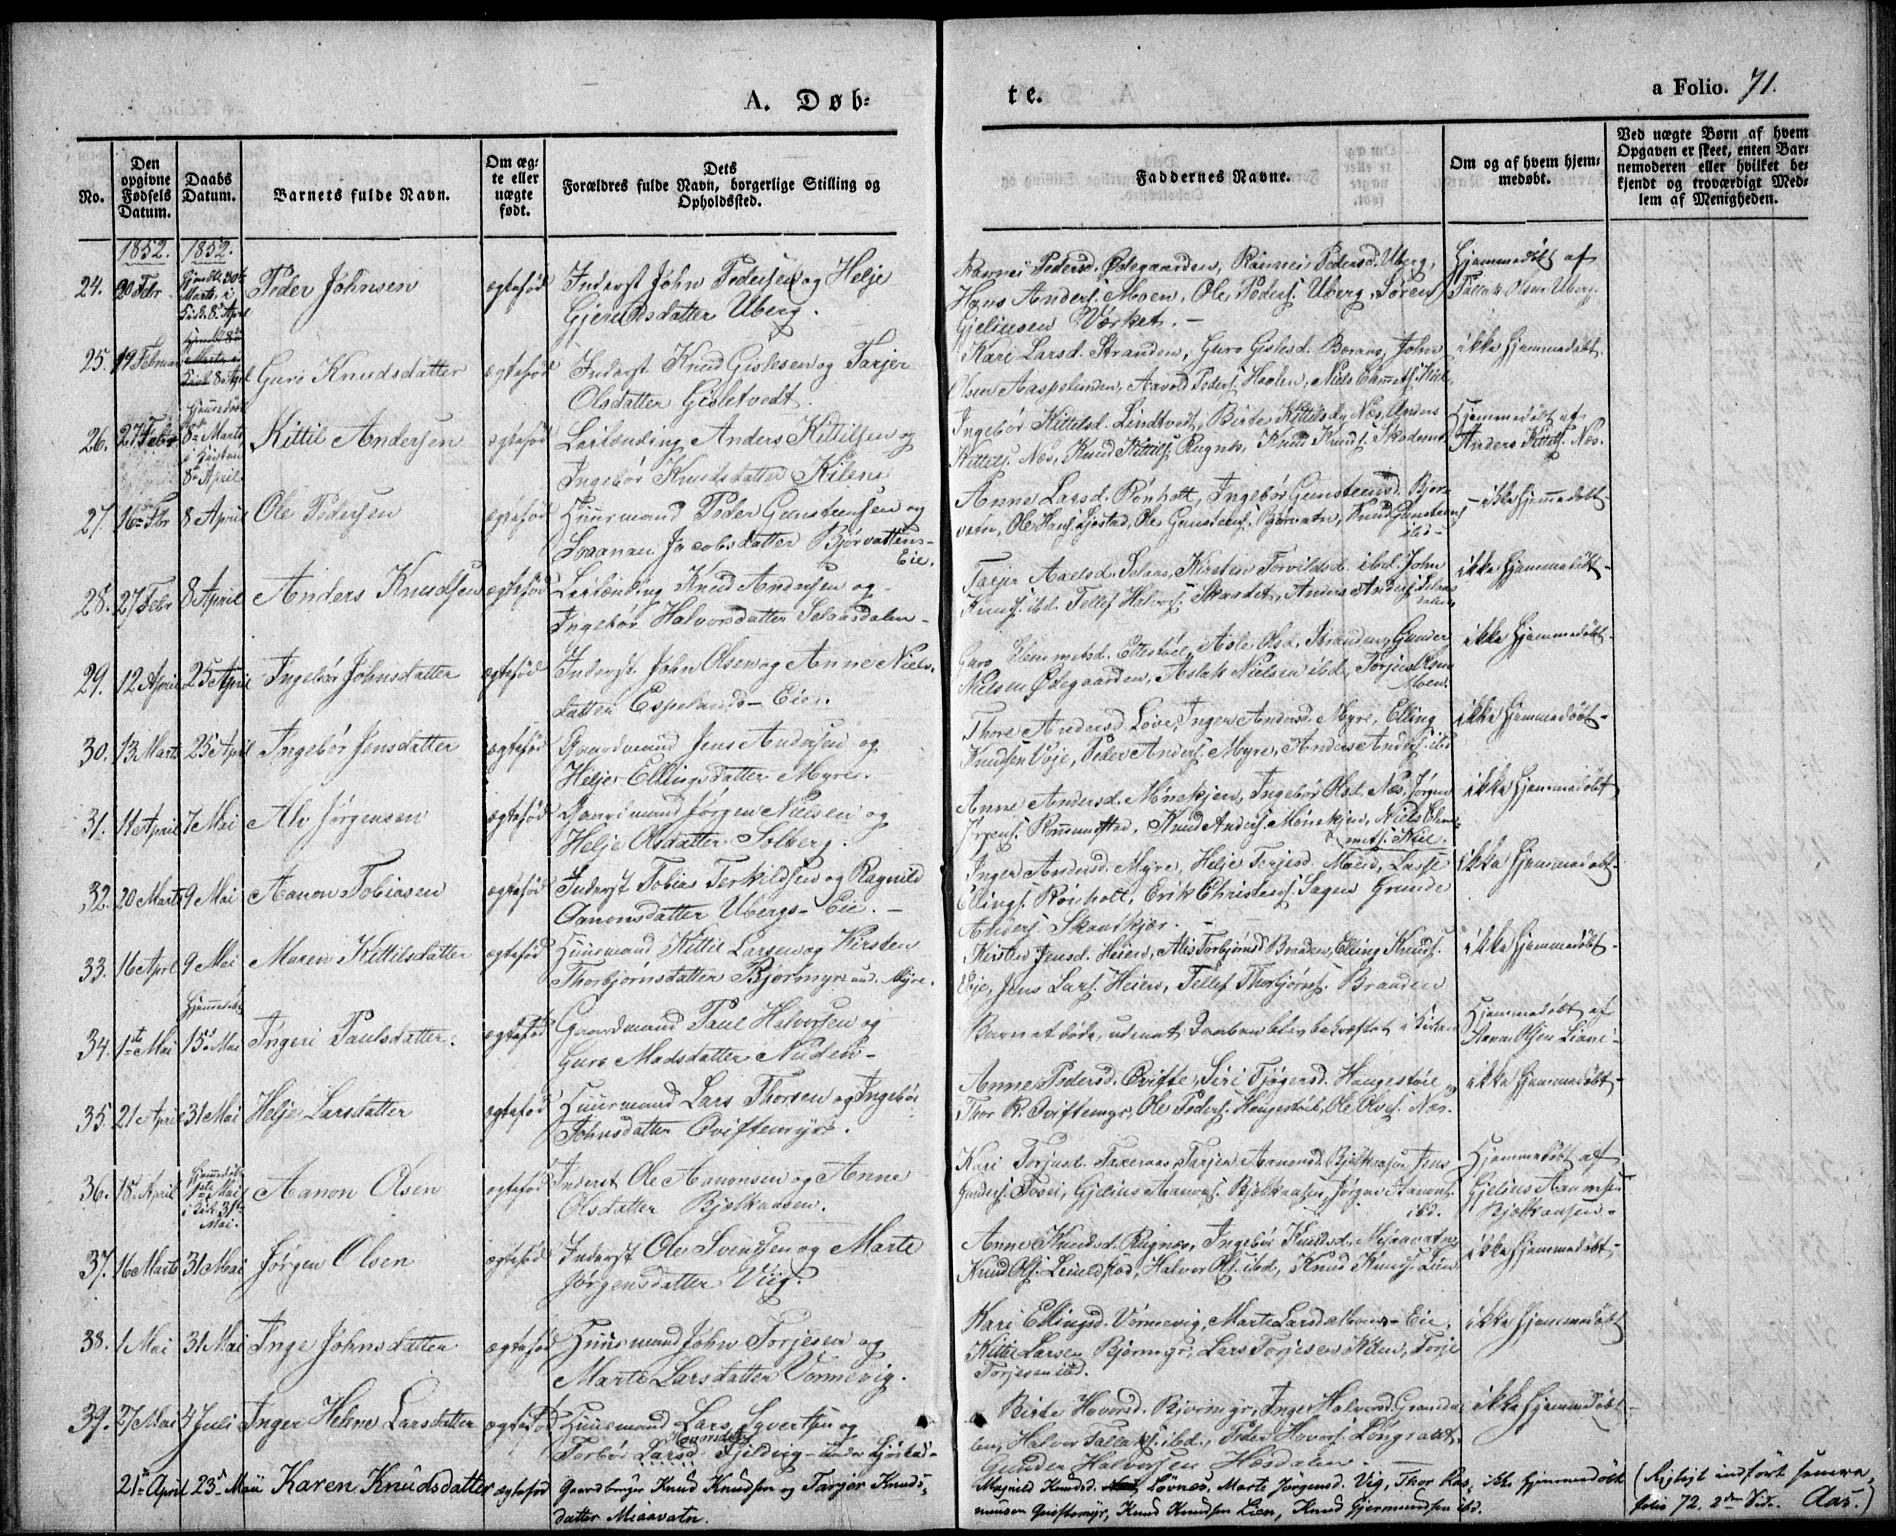 A. Døb-
te.
a Folio. 71.
No.
Den opgivne Fødsels Datum.
Daabs Datum.
Barnets fulde Navn.
Om ægte eller uægte født.
Dets Forældres fulde Navn, borgerlige Stilling og Opholdssted.
Faddernes Navne.
Om og af hvem hjemmedøbt.
Ved uægte Børn af hvem Opgaven er skeet, enten Barnemoderen eller hvilket bekjendt og troværdigt Medlem af Menigheden.
1852. 1852.
24. 20 Febr Peder Johnsen ægtefød Inderst John Pedersen og Helje
Gjerulsdatter Uberg.
Pedersd. Ødegaarden, Pedersd. Uberg,
Hans Anders. Moen, Ole Peders. Uberg, Søren
Gjeliusen Værket. -
Hjemmedøbt af
Tallak Olsen Uberg.
25. 19 Februar Guro Knudsdatter ægtefød Inderst Knud Gislesen og Tarjer
Olsdatter Gisletvedt.
Kari Larsd. Stranden, Guro Gislesd. Boraas, John
Olsen Aaspelunden, Aavold Peders. Haolen, Niels
ikke Hjemmedøbt
26. 27 Febr 8de Marts Kittil Andersen ægtefød Leilending Anders Kittilsen og
i Kirken 8de April
Ingebør Knudsdatter Kilene
Ingebør Kittelsd. Lindtvedt, Birte Kittilsd. Næs, Anders
Kittils. Næs, Knud Kittils. Rugnæs, Knud Knuds.
Hjemmedøbt af
Anders Kittils. Næs.
27. 16de Febr 8 April Ole Pedersen ægtefød Huusmand Peder Gunsteensen og
Jacobsdatter Bjørvattens-
Eie.
Anne Larsd. Rønholt, Ingebør Gunsteensd. Bjør-
vatn, Ole Hans. , Ole Gunsteens. Bjørvatn, Knud Gunsteens.
ibid-
- ikke Hjemmedøbt-
28. 27 Febr 8 April Anders Knudsen ægtefød Leilending Knud Andersen og
Ingebør Halvorsdatter Selaasdalen-
Tarjer Axelsd. Selaas, Kirsten Torvildsd. ibid. John
Knuds. ibid. Tellef Halvors. , Anders Anders. Selaas-
dalen
ikke Hjemmedøbt-
29. 12 April 25 April Ingebør Johnsdatter ægtefød Inderst John Olsen og Anne Niels-
datter Espelands-Eie.
Guro Clemmetsd. Ettestøel, Aasle Olsd. Stranden, Gunder
Nielsen Ødegaarden, Aslak Nielsen ibid, Torjus Olsen
Moen.
ikke Hjemmedøbt-
30. 13 Marts 25 April Ingebør Jensdatter ægtefød Gaardmand Jens Andersen og
Helje Ellingsdatter Myre.
Thore Andersd. Løvie, Inger Andersd. Myre, Elling
Knudsen Voje, Peder Anders. Myre, Anders Anders. ibid
ikke Hjemmedøbt-
31. 14 April 7 Mai Alv Jørgensen ægtefød Gaardmand Jørgen Nielsen og
Helje Olsdatter Solberg.
Anne Andersd. Mønekjen, Ingebør Olsd. Næs, Jørgen
Jørgens. Rommunstad, Knud Anders. Mønekjen, Niels Clem-
mets. Kiil.
ikke Hjemmedøbt
32. 20 Marts 9 Mai Aanon Tobiasen ægtefød Inderst Tobias Terkildsen og Ragnild
Aanonsdatter Ubergs-Eie. -
Inger Andersd. Myre, Helje Torjesd. Moland, Lasse
Ellings. Rønholt, Erik Christens. Sagen Grunde
Anders. Skautkjær. -
ikke Hjemmedøbt-
33. 16 April 9 Mai Maren Kittilsdatter ægtefød Huusmand Kittil Larsen og Kirsten
Thorbjørnsdatter Bjørmyr und. Myre.
Kirsten Jensd. Heien, Alis Torbjørnsd. Braaden, Elling Knuds.
Voje, Jens Lars. Heien, Tellef Thorbjørns. Braaden
ikke Hjemmedøbt-
34. 1ste Mai Hjemmedøbt 15de Mai Ingeri Paulsdatter. ægtefød Gaardmand Paul Halvorsen og
Guro Madsdatter Nuden-
Barnet døde, uden at Daaben blev bekræftet i Kirken
Hjemmedøbt af
Aanon Olsen Liane-
35. 21 April 31 Mai Helje Larsdatter ægtefød Huusmand Lars Thorsen og Ingebør
Johnsdatter Qviftemyr.
Anne Pedersd. Qvifte, Siri Tjøgersd. Haugestøel
Thor R. Qviftemyr, Ole Peders. Haugestøel, Ole Ols. Næs.
ikke Hjemmedøbt-
36. 18de April Aanon Olsen ægtefød Inderst Ole Aanonsen og Anne
Olsdatter Bjelkaasen.
Kari Torjusd. , Tarjer Aanonsd. Bjelkaasen, Jens
Gunders. Fosse, Gjelius Aanons. Bjelkaasen, Jørgen Aanons.
ibid.
Hjemmedøbt af
Gjelius Aanons.
Bjelkaasen-
37. 16 Marts 31 Mai Jørgen Olsen ægtefød Inderst Ole Svendsen og Marte
Jørgensdatter Viig.
Anne Knudsd. Rugnæs, Ingebør Knudsd. Mjaavatn,
Knud Ols. , Halvor Ols. ibid, Knud Knuds. Lien
ikke Hjemmedøbt-
38. 1 Mai 31 Mai Inge Johnsdatter ægtefød Huusmand John Torjesen og
Marte Larsdatter Vonnevig.
Kari Ellingsd. Vonnevig, Marte Larsd. Moens-Eie,
Kittil Larsen Bjørmyr, Lars Torjesen Kilen, Torje
Torjesen ibid.
ikke Hjemmedøbt
39. 27 Mai 4 Juli Inger Helene Larsdatter ægtefød Huusmand Lars Syvertsen og
Torbør Hovorsdatter Fjeldvig- under
Birte Hovorsd. Bjørmyr, Inger Halvorsd. Grændal-
len, Halvor Tallaks. ibid., Peder Hovors. Longvedt,
Gunder Halvorsen Hæsdalen. -
ikke Hjemmedøbt-
21de April 23de Maii Karen Knudsdatter ægtefød Gaardbruger Knud Knudsen og Tarjer Knuds-
datter Miaavatn.
Magnild Knudsd. Løvnæs, Marte Jørgensd. Vig, Thor Ras-
mussen Qviftemyr, Knud Knudsen Lien, Knud Gjermundsen ibd.
ikke hjemmedøbt
(Rigtigt indført senere,
folio 72. 2den Side. Aas.)